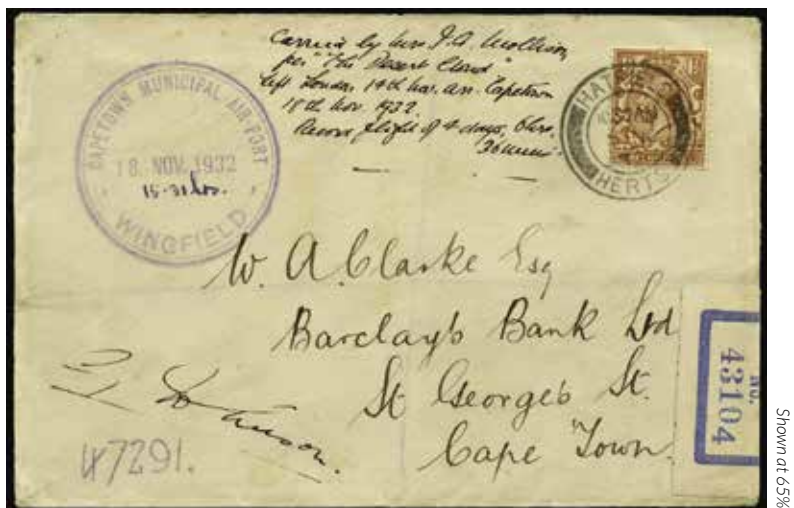 Carried by Mrs J.A. Mollison
per "The Desert Cloud"
left London 14th Nov. arr. Capetown
18th Nov. 1932
Record flight of 4 days, 6 hrs,
CAPETOWN MUNICIPAL AIR-PORT
18. NOV. 1932
15.31 hrs.
WINGFIELD
HERTS
W. A. Clarke Esq
Barclay's Bank Ltd
St George's St.
Cape Town.
No.
43104
47291.
Shown at 65%